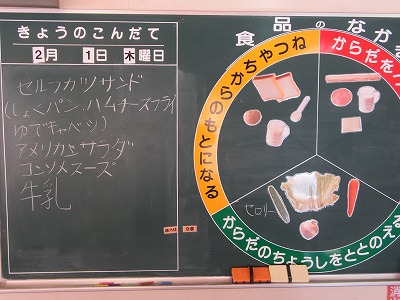 きょうのこんだて
2月 1日 木曜日
セルフカツサンド
(しょくパン、ハムチーズフライ
ゆでキャベツ)
アメリカンサラダ
コンソメスープ
牛乳
食品のなかま
ちからやねつのもとになる
からだをつ
からだのちょうしをととのえる
セロリー